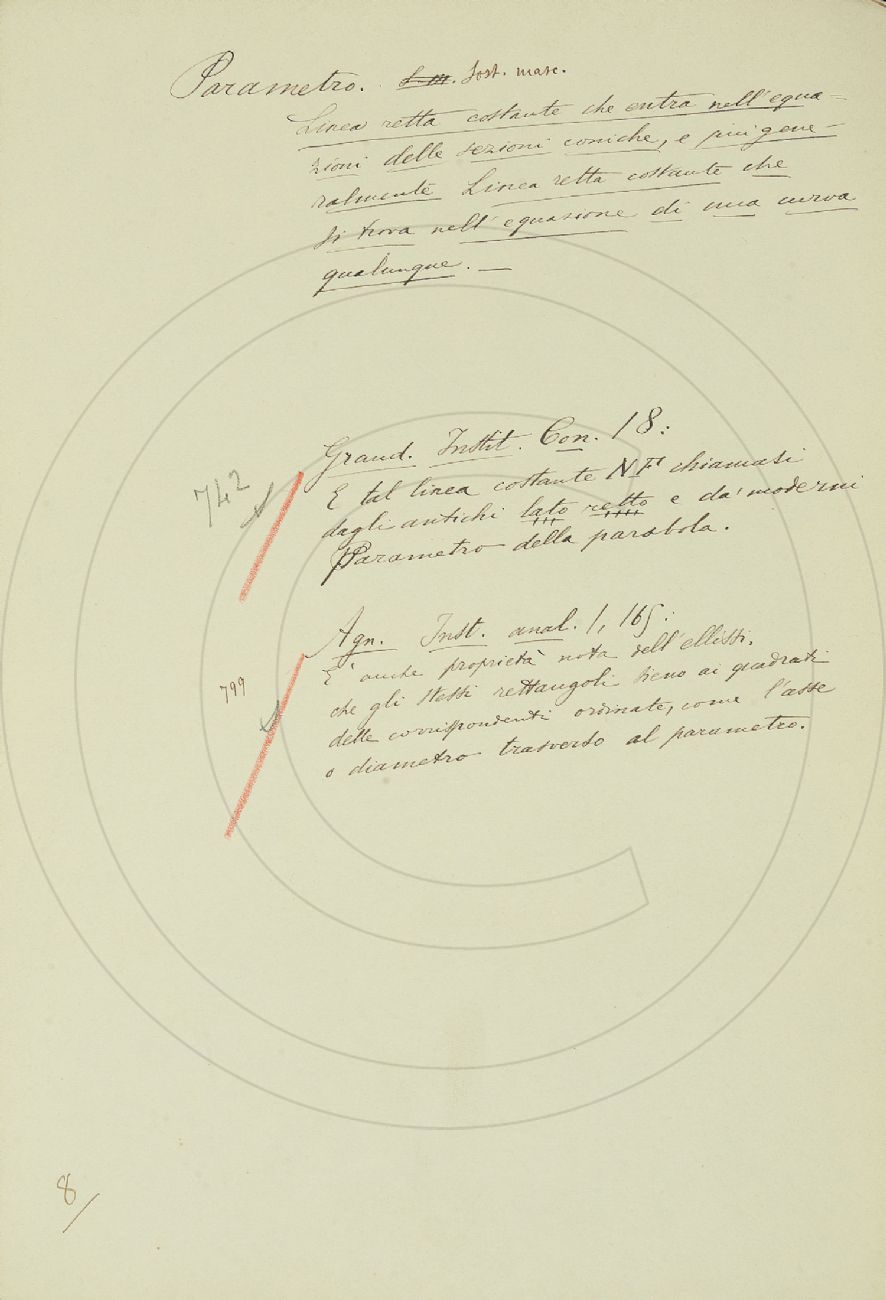 Parametro. S. m. Sost. masc.
Linea retta costante che entra nell'equa-
zioni delle sezioni coniche, e più gene-
ralmente Linea retta costante che
si trova nell'equasione di una curva
qualunque. —
Grand. Instit. Con. 18:
E tal linea costante NF chiamasi
dagli antichi lato retto e da' moderni
Parametro della parabola.
742
Agn. Inst. anal. 1, 165:
E' anche proprietà nota dell'ellissi,
che gli stessi rettangoli sieno ai quadrati
delle corrispondenti ordinate, come l'asse
o diametro trasverso al parametro.
799
8